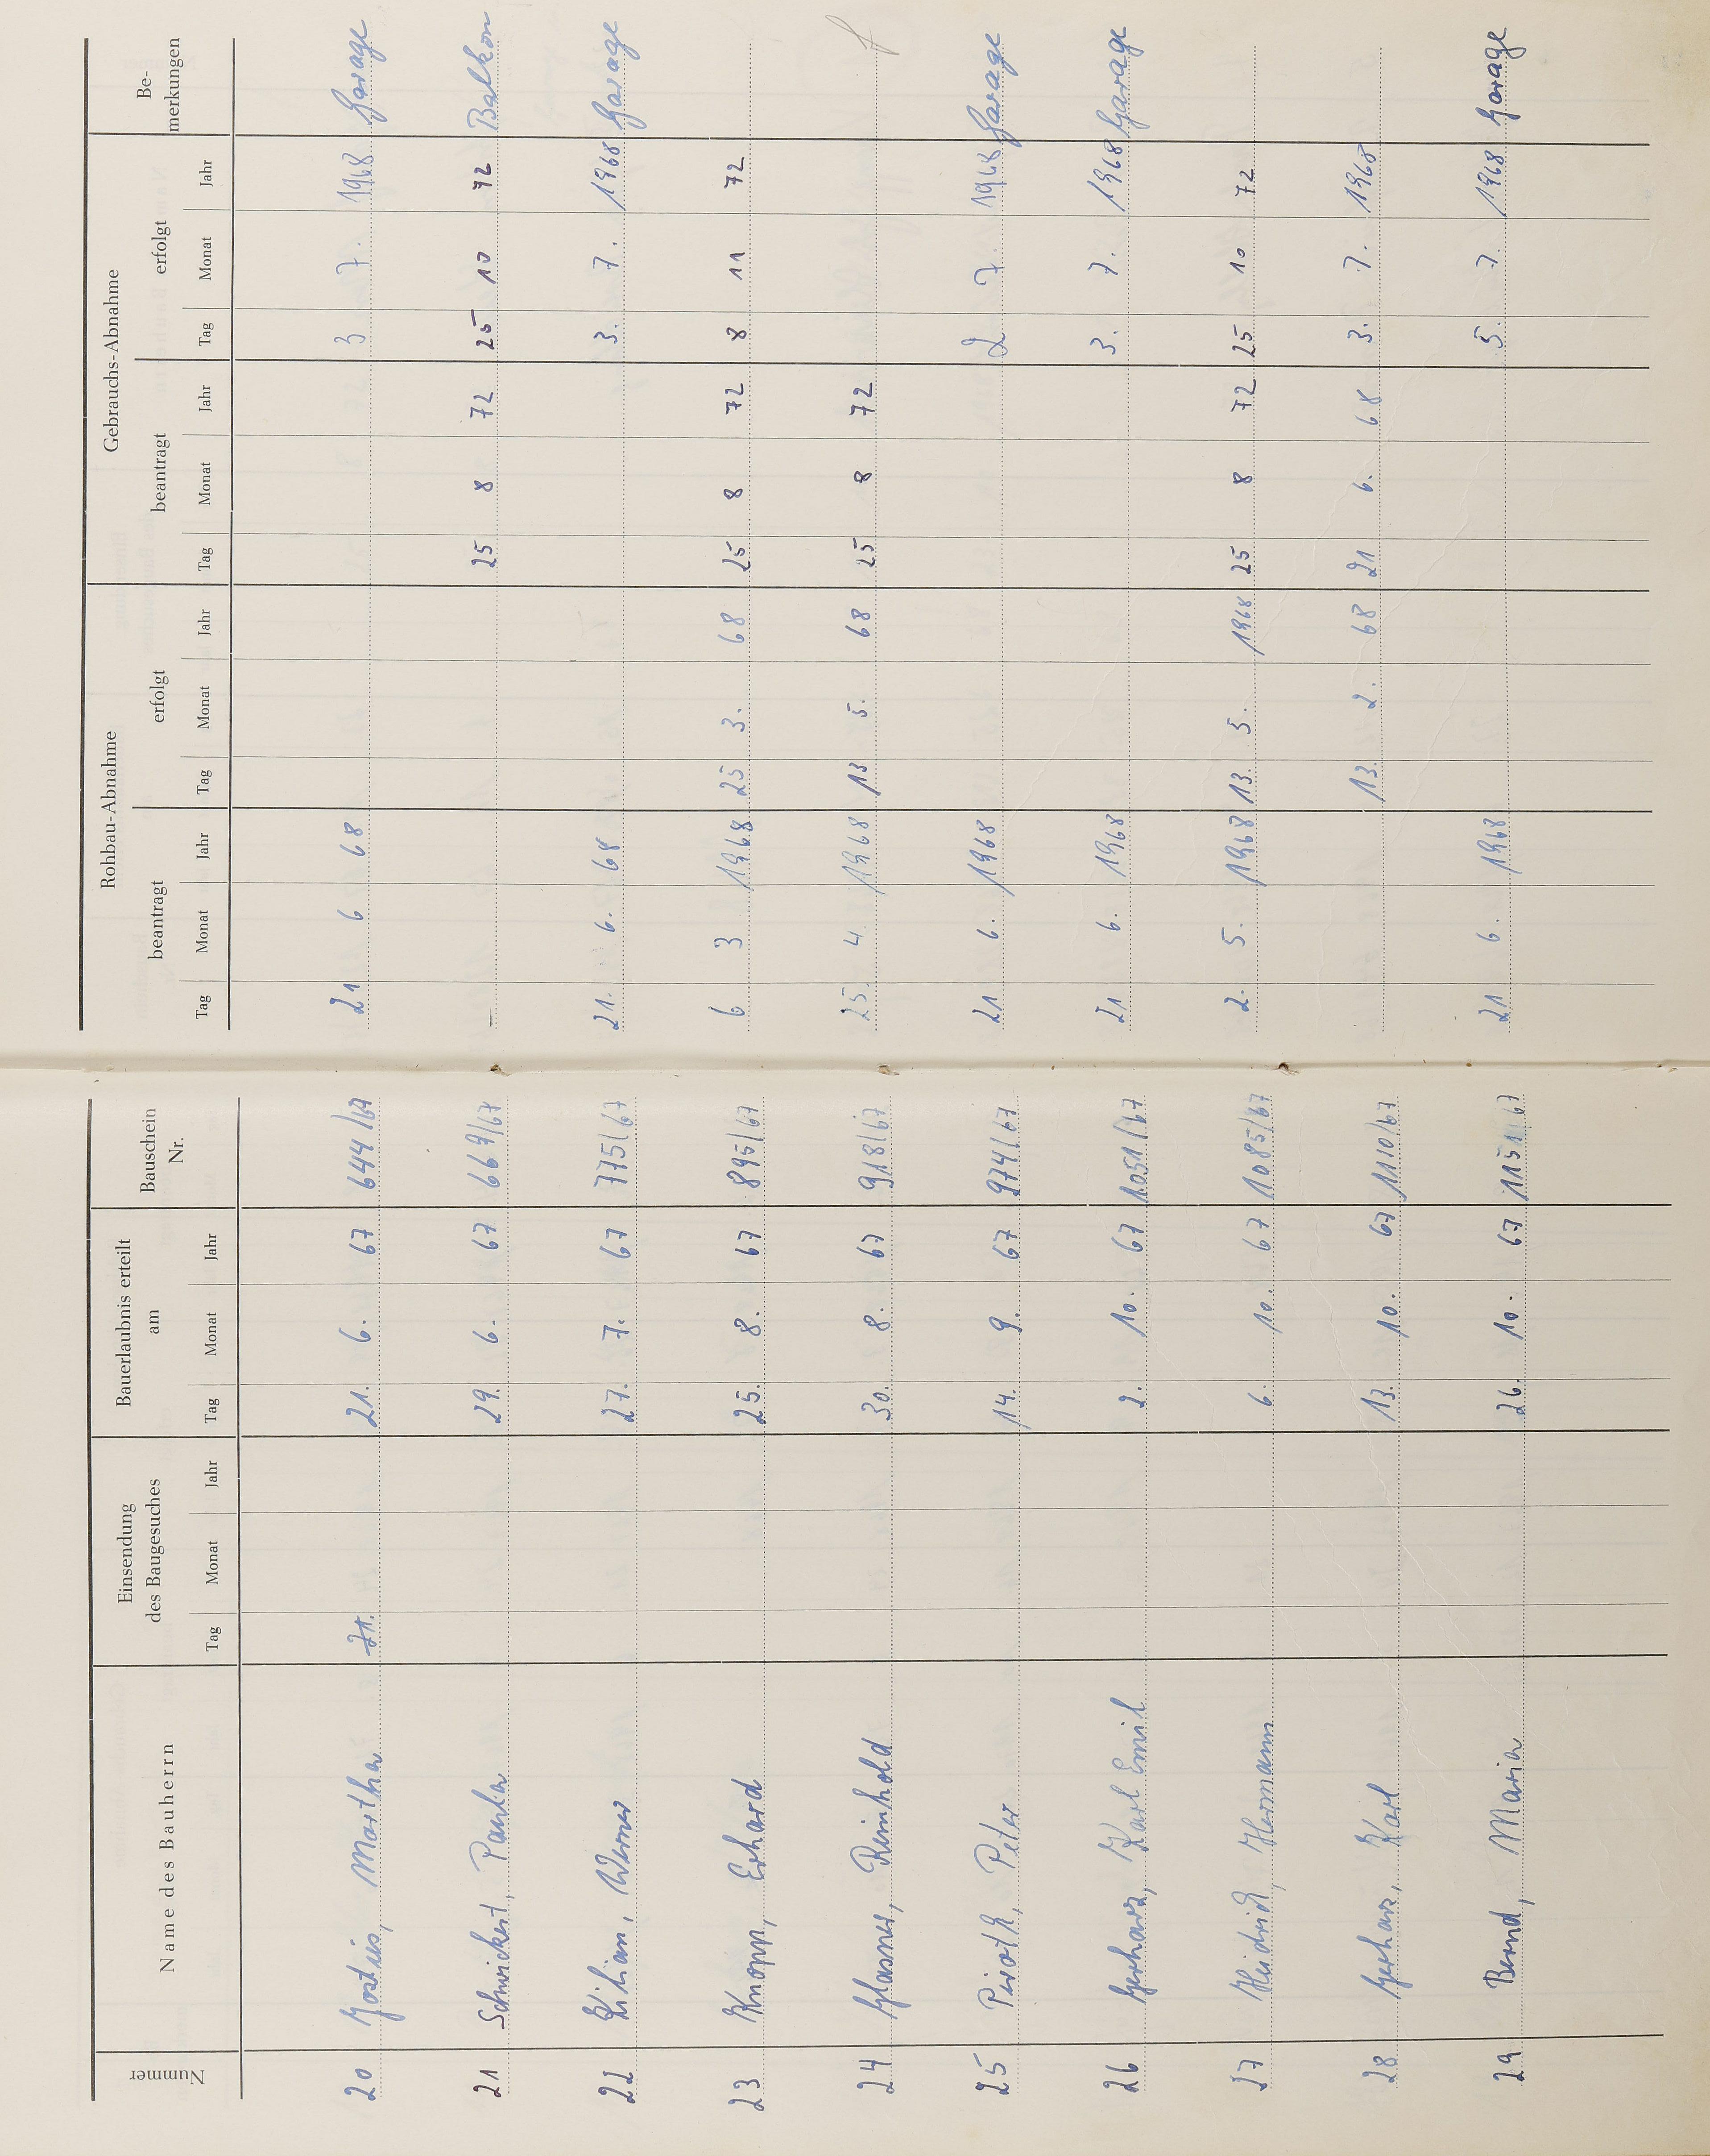 Nummer Name des Bauherrn Einsendung des Baugesuches Bauerlaubnis erteilt am Bauschein Nr. Rohbau-Abnahme Gebrauchs-Abnahme Be-merkungen
beantragt erfolgt beantragt erfolgt
Tag Monat Jahr Tag Monat Jahr Tag Monat Jahr Tag Monat Jahr Tag Monat Jahr Tag Monat Jahr
20 Martha 21. 21. 6. 67 644/67 21 6 68 3 7. 1968 Garage
21 Schwickert, Paula 29. 6. 67 669/67 25 8 72 25 10 72 Balkon
22 Kilian, Werner 27. 7. 67 775/67 21. 6. 68 3. 7. 1968 Garage
23 Knopp, Erhard 25. 8. 67 895/67 6 3 1968 25 3. 68 25 8 72 8 11 72
24 Glasner, Reinhold 30. 8. 67 918/67 25. 4 1968 13 5. 68 25 8 72
25 Piroth, Peter 14. 9. 67 974/67 21 6. 1968 2 7. 1968 Garage
26 Gerharz, Karl Emil 2. 10. 67 1051/67 21 6. 1968 3. 7. 1968 Garage
27 Heidrich, Hermann 6. 10. 67 1085/67 2. 5. 1968 13. 5. 1968 25 8 72 25 10 72
28 Gerharz, Karl 13. 10. 67 1110/67 13. 2. 68 21 6. 68 3. 7. 1968
29 Bernd, Maria 26. 10. 67 1151/67 21 6. 1968 5. 7. 1968 Garage